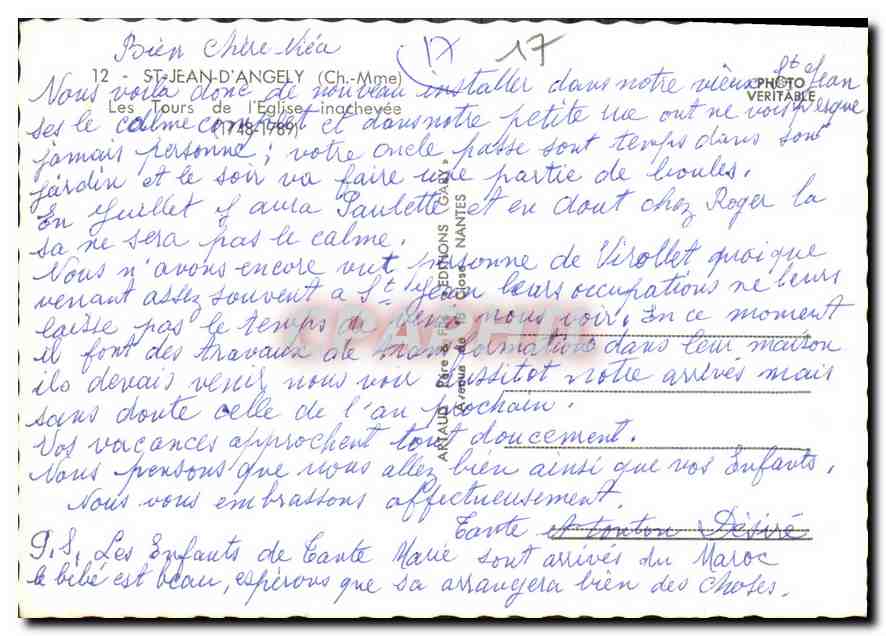 Bien chère Néa
17 17
12 - ST-JEAN-D'ANGELY (Ch.-Mme)
Les Tours de l'Eglise inachevée
(1748-1789)
PHOTO
VERITABLE
Nous voilà donc de nouveau installer dans notre vieux St Jean
ses le calme complet et dans notre petite rue ont ne vois presque
jamais personne ; votre oncle passe sont temps dans son
jardin et le soir va faire une partie de boules.
En Juillet y aura Paulette et en dout chez Roger la
sa ne sera pas le calme.
Nous n'avons encore vut personne de Virollet quoique
venant assez souvent a St Jean leurs occupations ne leurs
laisse pas le temps de venir nous voir. En ce moment
il font des travaux de transformations dans leur maison
ils devais venir nous voir aussitot notre arrivés mais
sans doute celle de l'an prochain.
Vos vacances approchent tout doucement.
Nous pensons que vous allez bien ainsi que vos Enfants.
Nous vous embrassons affectueusement.
Tante et tonton Désiré
P.S. Les Enfants de Tante Marie sont arrivés du Maroc
le bébé est beau, espérons que sa arrangera bien des choses.
ARTAUD Père & Fils EDITIONS GABY
Avenue de la Close NANTES